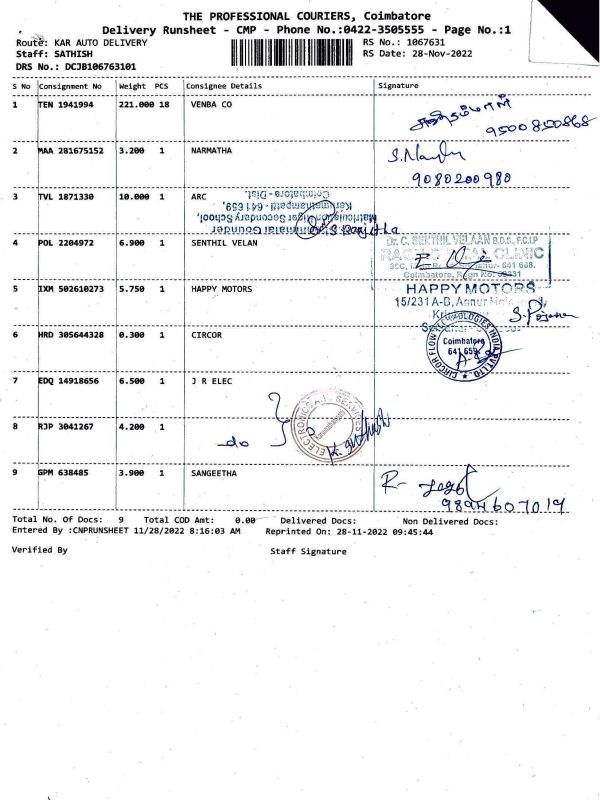 THE PROFESSIONAL COURIERS, Coimbatore
Delivery Runsheet - CMP - Phone No.:0422-3505555 - Page No.:1
Route: KAR AUTO DELIVERY RS No.: 1067631
Staff: SATHISH RS Date: 28-Nov-2022
DRS No.: DCJB106763101
S No Consignment No Weight PCS Consignee Details Signature
1 TEN 1941994 221.000 18 VENBA CO
9500850868
2 MAA 281675152 3.200 1 NARMATHA
9080200980
3 TVL 1871330 10.000 1 ARC
Matriculation Higher Secondary School,
Karumathampatti - 641 659,
Coimbatore - Dist.
4 POL 2204972 6.900 1 SENTHIL VELAN
Dr. C. SENTHIL VELAAN B.D.S., F.C.I.P
CLINIC
641 668.
Coimbatore,
5 IXM 502610273 5.750 1 HAPPY MOTORS
HAPPY MOTORS
15/231 A-B, Annur
6 HRD 305644328 0.300 1 CIRCOR
CIRCOR FLOW TECHNOLOGIES INDIA PVT LTD
Coimbatore
641 659
7 EDQ 14918656 6.500 1 J R ELEC
8 RJP 3041267 4.200 1
do
9 GPM 638485 3.900 1 SANGEETHA
9894607019
Total No. Of Docs: 9 Total COD Amt: 0.00 Delivered Docs: Non Delivered Docs:
Entered By :CNPRUNSHEET 11/28/2022 8:16:03 AM Reprinted On: 28-11-2022 09:45:44
Verified By Staff Signature